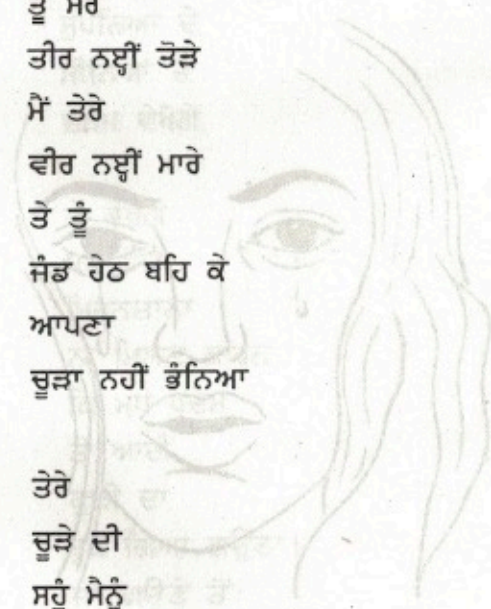 ਤੂੰ ਮੇਰੇ
ਤੀਰ ਨਈਂ ਤੋੜੇ
ਮੈਂ ਤੇਰੇ
ਵੀਰ ਨਈਂ ਮਾਰੇ
ਤੇ ਤੂੰ
ਜੰਡ ਹੇਠ ਬਹਿ ਕੇ
ਆਪਣਾ
ਚੂੜਾ ਨਹੀਂ ਭੰਨਿਆ
ਤੇਰੇ
ਚੂੜੇ ਦੀ
ਸਹੁੰ ਮੈਨੂੰ